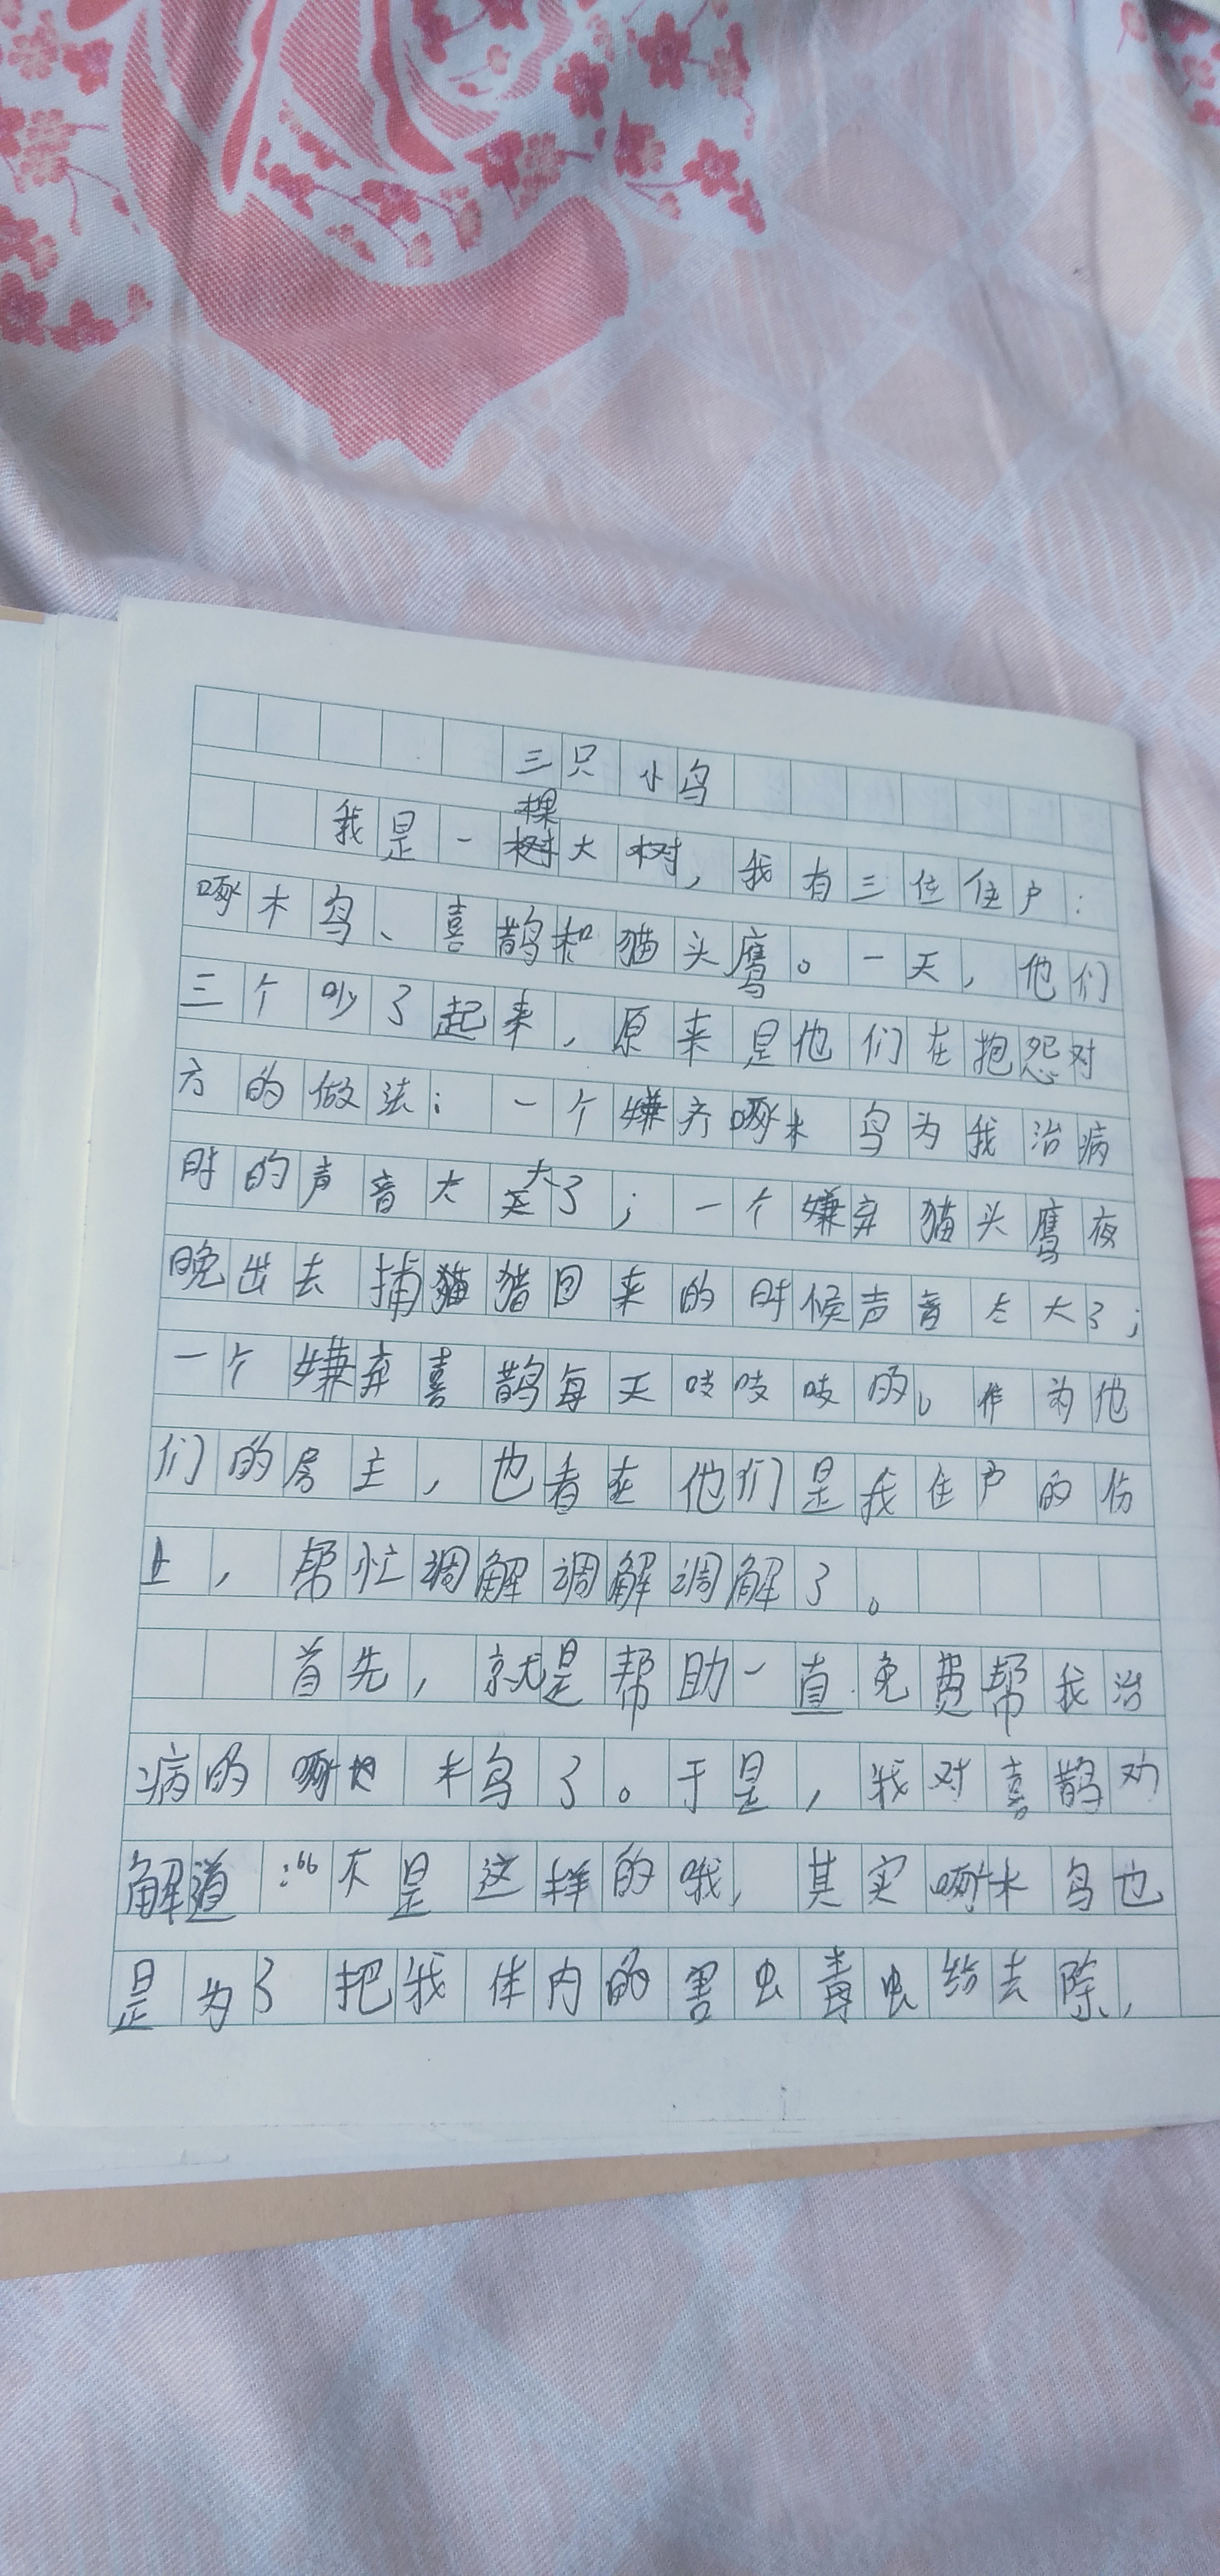 三只小鸟
我是一棵大树，我有三位住户：
啄木鸟、喜鹊和猫头鹰。一天，他们
三个吵了起来，原来是他们在抱怨对
方的做法：一个嫌弃啄木鸟为我治病
时的声音太大了；一个嫌弃猫头鹰夜
晚出去捕猎回来的时候声音太大了；
一个嫌弃喜鹊每天吱吱吱的。作为他
们的房主，也看在他们是我住户的份
上，帮忙调解调解调解了。
首先，就是帮助一直免费帮我治
病的啄木鸟了。于是，我对喜鹊劝
解道：“不是这样的哦，其实啄木鸟也
是为了把我体内的害虫毒虫给去除，